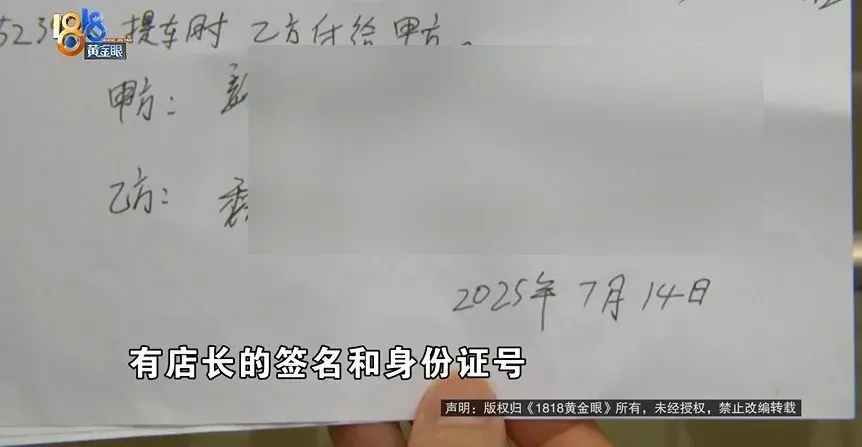 1818
黄金眼
提车时 乙方付给甲方。
甲方：
乙方：
2025年7月14日
有店长的签名和身份证号
声明：版权归《1818黄金眼》所有，未经授权，禁止改编转载